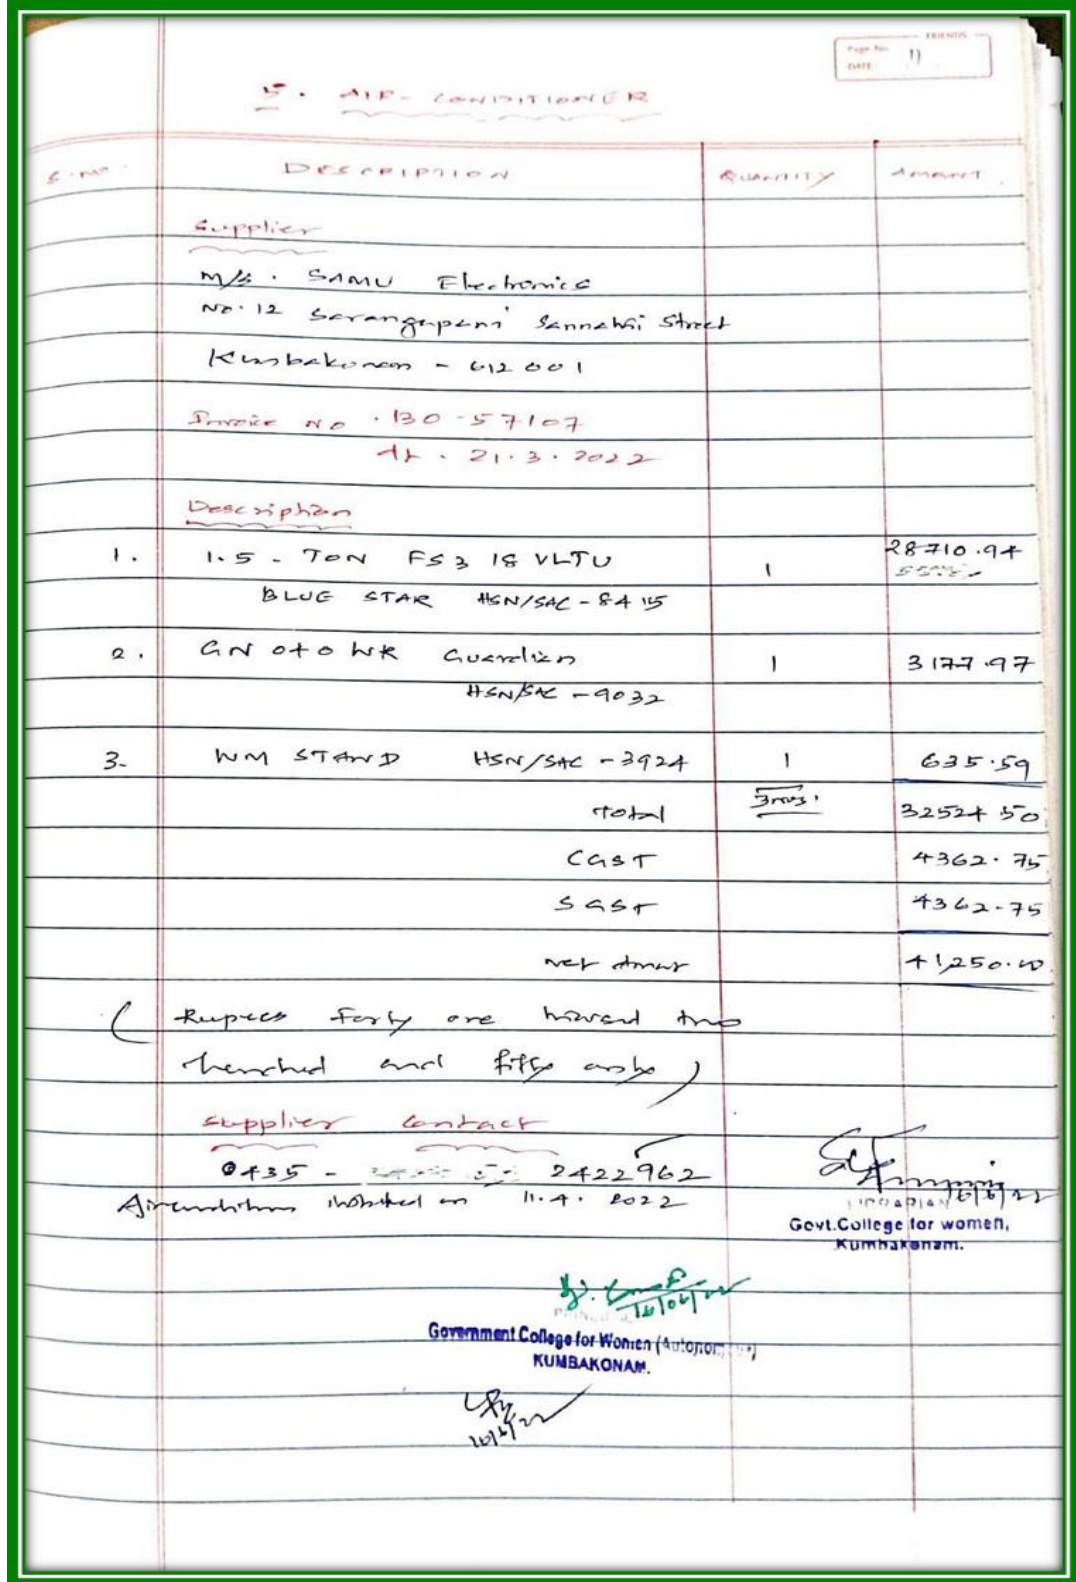 FRIENDS
Page No. 11
DATE
5. AIR-CONDITIONER
S.NO. DESCRIPTION QUANTITY AMOUNT
Supplier
M/s. SAMU Electronics
No. 12 Sarangapani Sannathi Street
Kumbakonam - 612 001
Invoice No. 130-57107
dt. 21.3.2022
Description
1. 1.5 - TON FS3 18 VLTU 1 28710.94
BLUE STAR HSN/SAC - 8415
2. GN 0+0 WR Guardian 1 3177.97
HSN/SAC - 9032
3- WM STAND HSN/SAC - 3924 1 635.59
Total 3nos. 32524.50
CGST 4362.75
SGST 4362-75
Net Amount 41,250.00
(Rupees Forty one thousand two
hundred and fifty only)
Supplier Contact
0435 - 2422962
Airconditioner installed on 11.4.2022
LIBRARIAN
Govt.College for women,
Kumbakonam.
16/06/22
Government College for Women (Autonomous)
KUMBAKONAM.